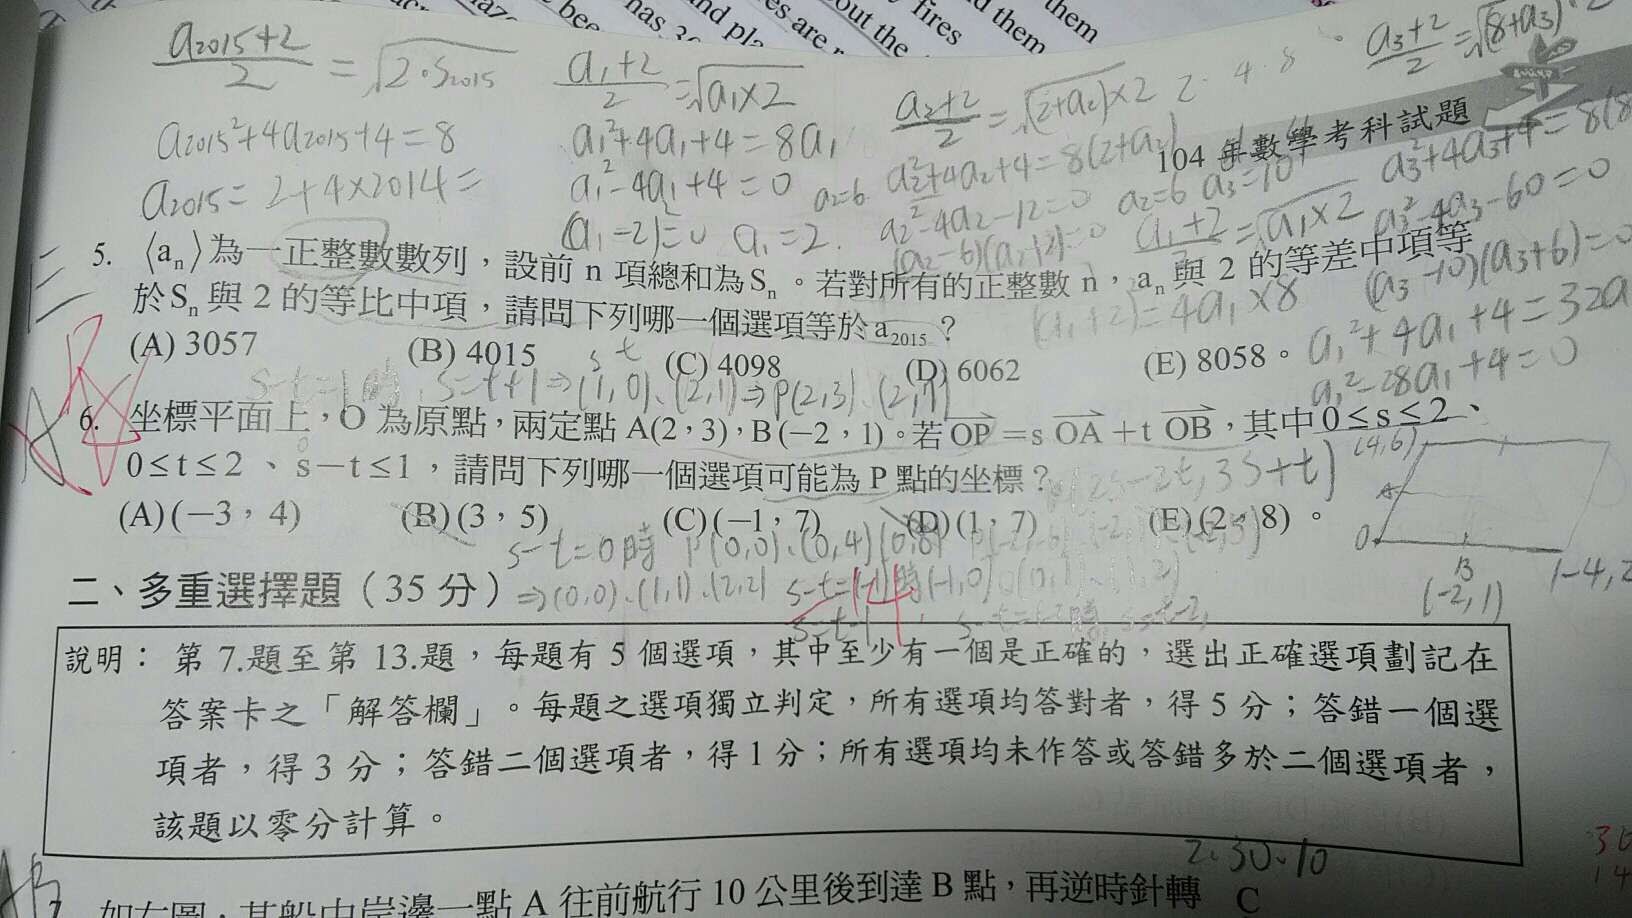 has
and pla
es are
out the
fires
d them
them
a₂₀₁₅+2 / 2 = √2·S₂₀₁₅
a₁+2 / 2 = √a₁×2
a₂+2 / 2 = √(2+a₂)×2
2·4·8
a₃+2 / 2 = √(8+a₃)
a₂₀₁₅²+4a₂₀₁₅+4=8
a₁²+4a₁+4=8a₁
a₂²+4a₂+4=8(2+a₂)
104 年數學考科試題
a₃²+4a₃+4=8(8
a₂₀₁₅=2+4×2014=
a₁²-4a₁+4=0
a₂=6
a₂²-4a₂-12=0
a₂=6 a₃=10
a₃²-4a₃-60=0
(a₁-2)²=0 a₁=2.
(a₂-6)(a₂+2)=0
a₁+2 / 2 = √a₁×2
(a₃-10)(a₃+6)=0
5. ⟨aₙ⟩為一正整數數列，設前 n 項總和為Sₙ。若對所有的正整數 n，aₙ與 2 的等差中項等
於Sₙ與 2 的等比中項，請問下列哪一個選項等於a₂₀₁₅？
(a₁+2)=4a₁×8
a₁²+4a₁+4=32a
a₁²-28a₁+4=0
(A) 3057 (B) 4015 (C) 4098 (D) 6062 (E) 8058。
s t
s-t=1時，s=t+1⇒(1,0)、(2,1)⇒P(2,3)、(2,7)
6. 坐標平面上，O 為原點，兩定點 A(2，3)，B(−2，1)。若OP=s OA+t OB，其中0≤s≤2、
0≤t≤2、s−t≤1，請問下列哪一個選項可能為 P 點的坐標？
(2s-2t,3s+t)
(4,6)
A
O
B
(-2,1)
(-4,2
(A)(−3，4) (B)(3，5) (C)(−1，7) (D)(1，7) (E)(2，8)。
s-t=0時 P(0,0)、(0,4)(0,8)
⇒(0,0)、(1,1)、(2,2)
s-t=-1時(-1,0)(0,1)、(1,2)
二、多重選擇題（35 分）
說明：第 7.題至第 13.題，每題有 5 個選項，其中至少有一個是正確的，選出正確選項劃記在
答案卡之「解答欄」。每題之選項獨立判定，所有選項均答對者，得 5 分；答錯一個選
項者，得 3 分；答錯二個選項者，得 1 分；所有選項均未作答或答錯多於二個選項者，
該題以零分計算。
2·30·10
如右圖，某船由岸邊一點 A 往前航行 10 公里後到達 B 點，再逆時針轉 C